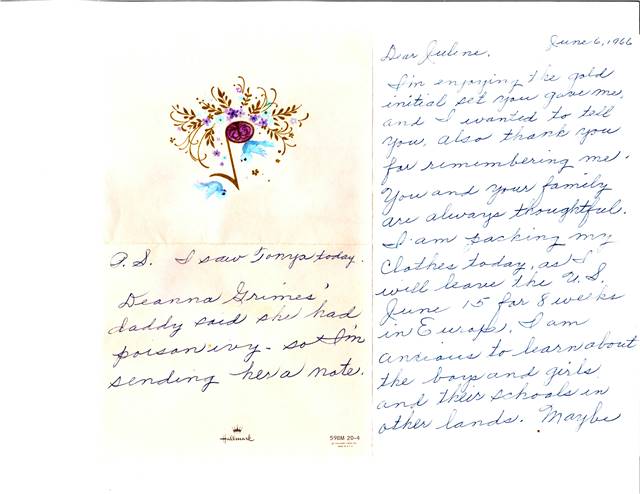 June 6, 1966
Dear Julene,
I'm enjoying the gold
initial set you gave me,
and I wanted to tell
you. Also thank you
for remembering me.
You and your family
are always thoughtful.
I am packing my
clothes today, as I
will leave the U.S.
June 15 for 8 weeks
in Europe. I am
anxious to learn about
the boys and girls
and their schools in
other lands. Maybe
P.S. I saw Tonya today.
Deanna Grimes'
daddy said she had
poison ivy - so I'm
sending her a note.
Hallmark
59BM 20-4